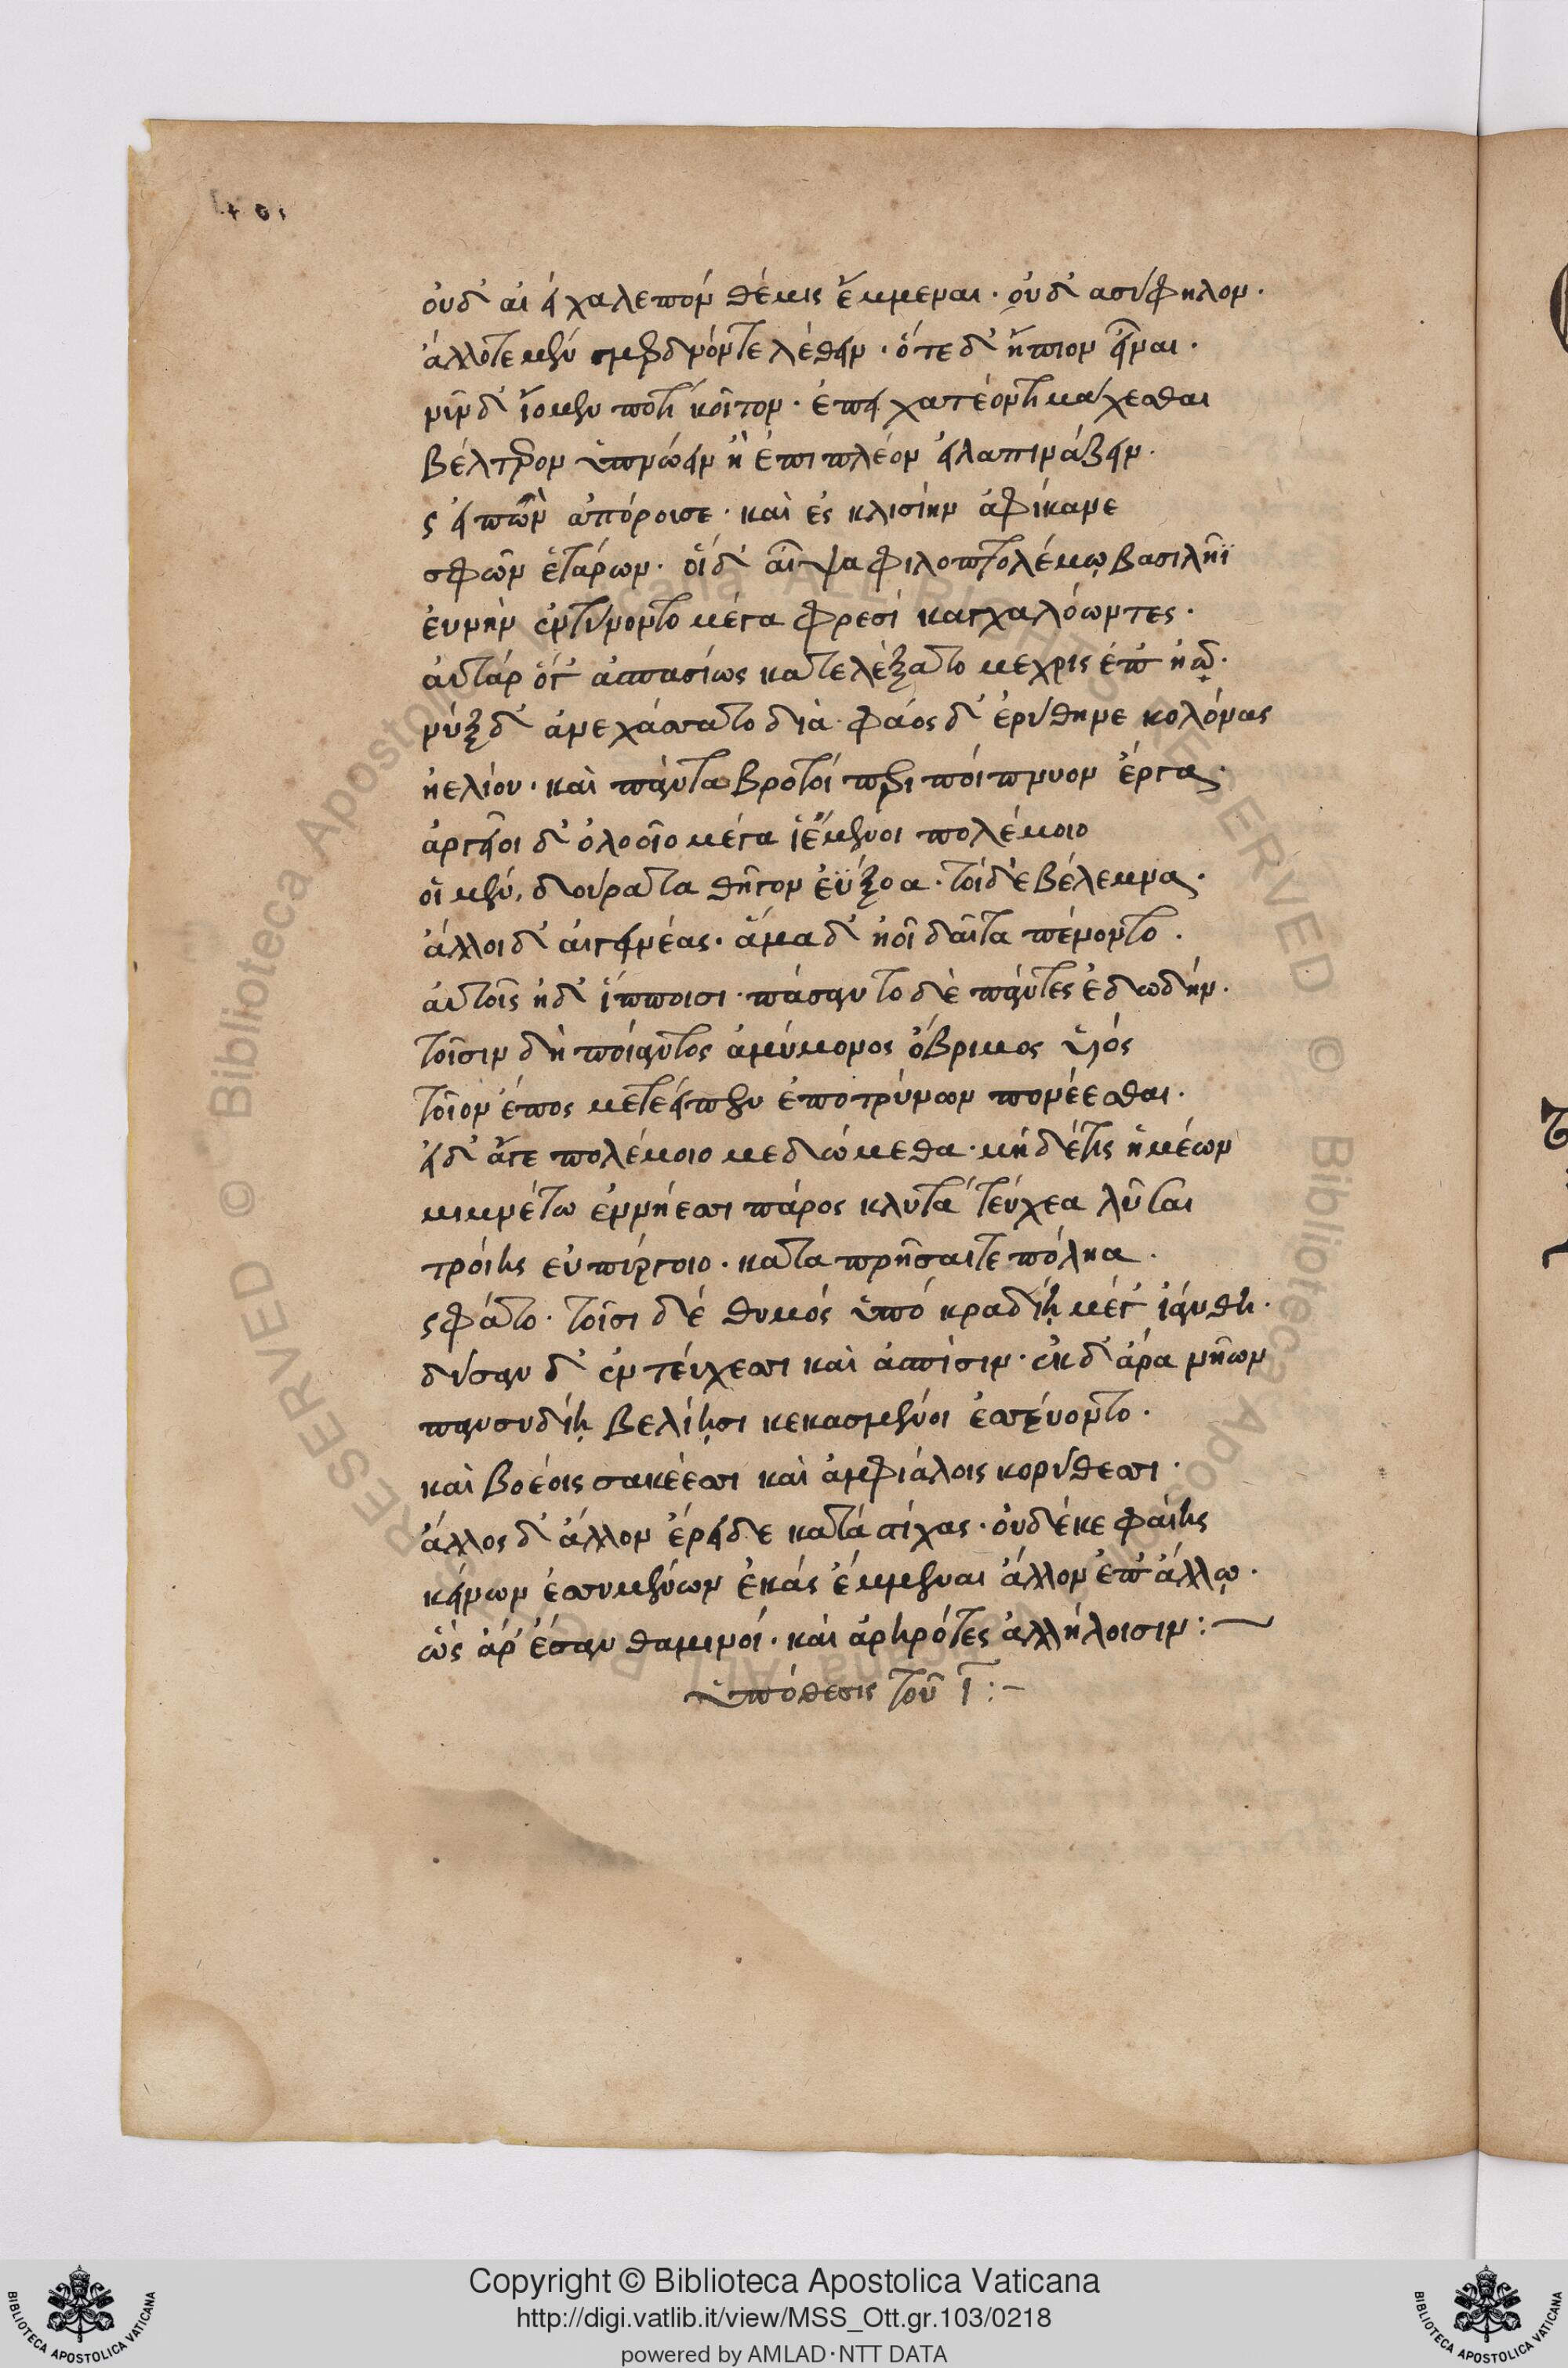 οὐδ αἰεὶ χαλεπὸν θέμις ἔμμεναι · οὐδ ἀσύφηλον ·
ἄλλοτε μὲν σμερδνόν τελέθειν · ὁτὲ δ' ἤπιον εἶναι ·
νῦν δ' ἴομεν ποτὶ κοῖτον · ἐπεὶ χατέοντι μάχεσθαι
βέλτερον ὑπνώειν ἢ ἐπιπλέον εἰλαπινάζειν ·
ς εἰπὼν ἀπόροισε · καὶ ἐς κλισίην ἀφίκανε
σφῶν ἑτάρων · οἵ δ' αἶψα φιλοπτολέμῳ βασιλῆϊ
εὐνὴν ἐντύνοντο μέγα φρεσὶ καγχαλόωντες ·
αὐτὰρ ὅγ' ἀσπασίως κατελέξατο μέχρις ἐπ' ἠῶ ·
νύξ δ' ἀνεχάσσατο δῖα · φάος δ' ἐρύθηνε κολώνας
ἠελίου · καὶ πάντα βροτοὶ περιποίπνυον ἔργα ·
ἀργεῖοι δ' ὀλοοῖο μέγα ἱέμενοι πολέμοιο
οἱ μὲν, δούρατα θῆγον ἐΰξοα · τοὶ δὲ βέλεμνα ·
ἄλλοι δ' αἰγανέας · ἅμα δ' ἠοῖ δαῖτα πένοντο ·
αὐτοῖς ἠδ' ἵπποισι · πάσαντο δὲ πάντες ἐδωδήν ·
τοῖσιν δὴ ποίαντος ἀμύμονος ὄβριμος υἱός
τοῖον ἔπος μετέειπεν ἐποτρύνων πονέεσθαι ·
εἰ δ' ἄγε πολέμοιο μεδώμεθα · μὴ δέτις ἡμέων
μιμνέτω ἐν νήεσσι πάρος κλυτὰ τεύχεα λῦσαι
τροίης εὐπύργοιο · καταπρῆσαί τε πόληα ·
ς φάτο · τοῖσι δέ θυμός ὑπό κραδίῃ μέγ' ἰάνθη ·
δύσαν δ' ἐν τεύχεσσι καὶ ἀσπίσιν · ἐκ δ' ἄρα νηῶν
πανσυδίῃ βελίῃσι κεκασμένοι ἐσσεύοντο ·
καὶ βοέοις σακέεσσι καὶ ἀμφιάλοις κορύθεσσι ·
ἄλλος δ' ἄλλον ἔρειδε κατά στίχας · οὐδέ κε φαίης
κείνων ἐσσυμένων ἑκάς ἔμμεναι ἄλλον ἐπ' ἄλλῳ ·
ὣς ἄρ' ἔσαν θαμινοί · καὶ ἀρηρότες ἀλλήλοισιν :~
ὑπόθεσις τοῦ ῑ :–
Copyright © Biblioteca Apostolica Vaticana
http://digi.vatlib.it/view/MSS_Ott.gr.103/0218
powered by AMLAD·NTT DATA